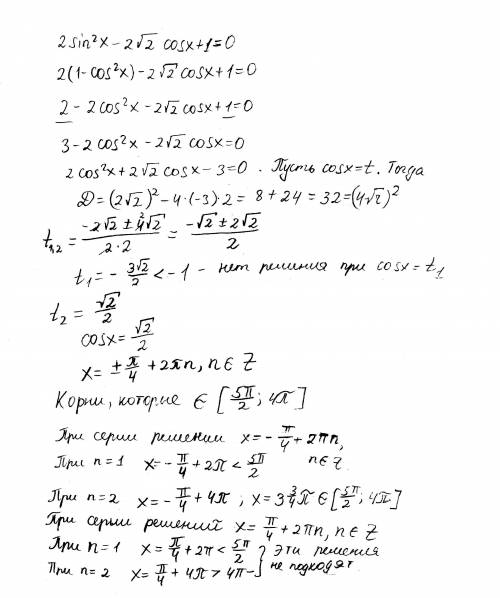 2sin²x - 2√2 cosx + 1 = 0
2(1 - cos²x) - 2√2 cosx + 1 = 0
2 - 2cos²x - 2√2 cosx + 1 = 0
3 - 2cos²x - 2√2 cosx = 0
2cos²x + 2√2 cosx - 3 = 0 . Пусть cosx = t. Тогда
D = (2√2)² - 4·(-3)·2 = 8 + 24 = 32 = (4√2)²
t₁,₂ = (-2√2 ± 4√2)/(2·2) = (-√2 ± 2√2)/2
t₁ = - 3√2/2 < -1 - нет решения при cosx = t₁
t₂ = √2/2
cosx = √2/2
x = ± π/4 + 2πn, n ∈ Z
Корни, которые ∈ [5π/2; 4π]
При серии решений x = - π/4 + 2πn,
При n = 1 x = - π/4 + 2π < 5π/2 n ∈ Z
При n = 2 x = - π/4 + 4π ; x = 3 3/4 π ∈ [5π/2; 4π]
При серии решений x = π/4 + 2πn, n ∈ Z
При n = 1 x = π/4 + 2π < 5π/2 } эти решения
При n = 2 x = π/4 + 4π > 4π - не подходят